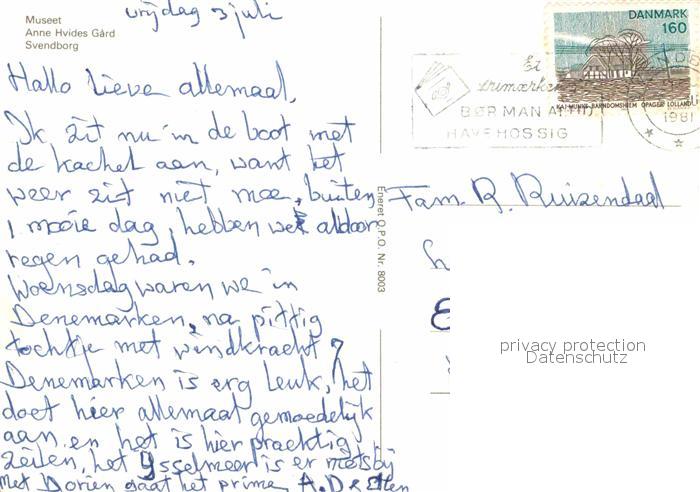 Museet
Anne Hvides Gård
Svendborg
vrijdag 3 juli
Hallo lieve allemaal,
Ik zit nu in de boot met
de kachel aan, want het
weer zit niet mee, buiten
1 mooie dag, hebben we aldoor
regen gehad.
Woensdag waren we in
Denemarken, na pittig
tochtje met windkracht 7
Denemarken is erg leuk, het
doet hier allemaal gemoedelijk
aan en het is hier prachtig
zeilen, het Ysselmeer is er niets bij
Met Dorien gaat het prima,
Eneret O.P.O. Nr. 8003
DANMARK
160
KAJ MUNKS BARNDOMSHJEM OPAGER LOLLAND
Et
frimærke
BØR MAN ALTID
HAVE HOS SIG
1981
Fam. R. Ruizendaal
privacy protection
Datenschutz